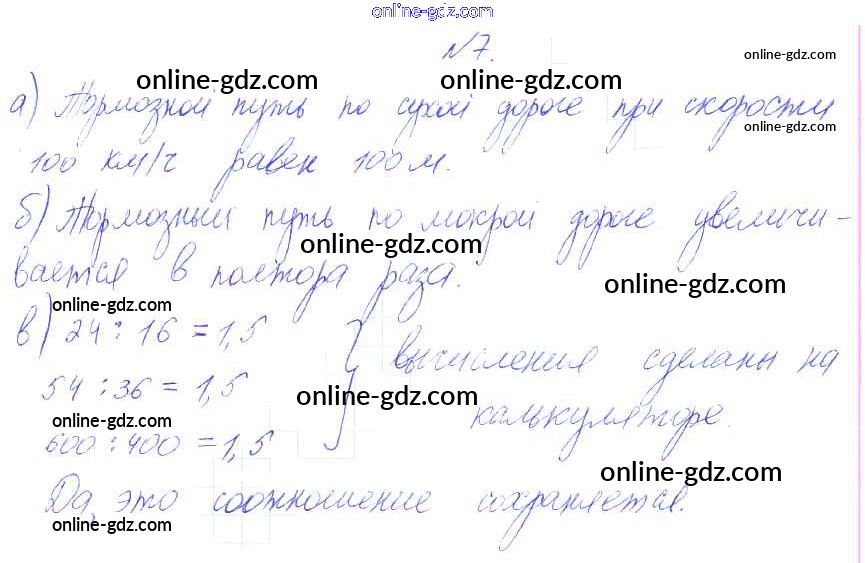 online-gdz.com
№7. online-gdz.com
online-gdz.com online-gdz.com
а) Тормозной путь по сухой дороге при скорости
online-gdz.com
100 км/ч равен 100 м.
б) Тормозный путь по мокрой дороге увеличи-
online-gdz.com
вается в полтора раза. online-gdz.com
online-gdz.com
в) 24 : 16 = 1,5
вычисления сделаны на
54 : 36 = 1,5 online-gdz.com
online-gdz.com калькуляторе.
600 : 400 = 1,5
online-gdz.com
Да, это соотношение сохраняется.
online-gdz.com online-gdz.com